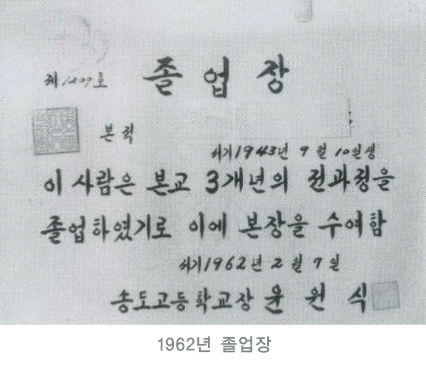 졸업장
제1207호
본적
서기1943년 9월 10일생
이 사람은 본교 3개년의 전과정을
졸업하였기로 이에 본장을 수여함
서기1962년 2월 7일
송도고등학교장 윤원식
1962년 졸업장